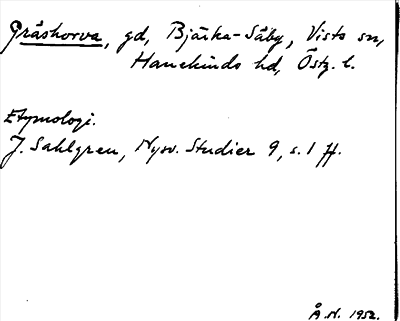 Gråskorva, gd, Bjärka-Säby, Vists sn,
Hanekinds hd, Östg. l.
Etymologi.
J. Sahlgren, Nysv. Studier 9, s. 1 ff.
Å.N. 1952.